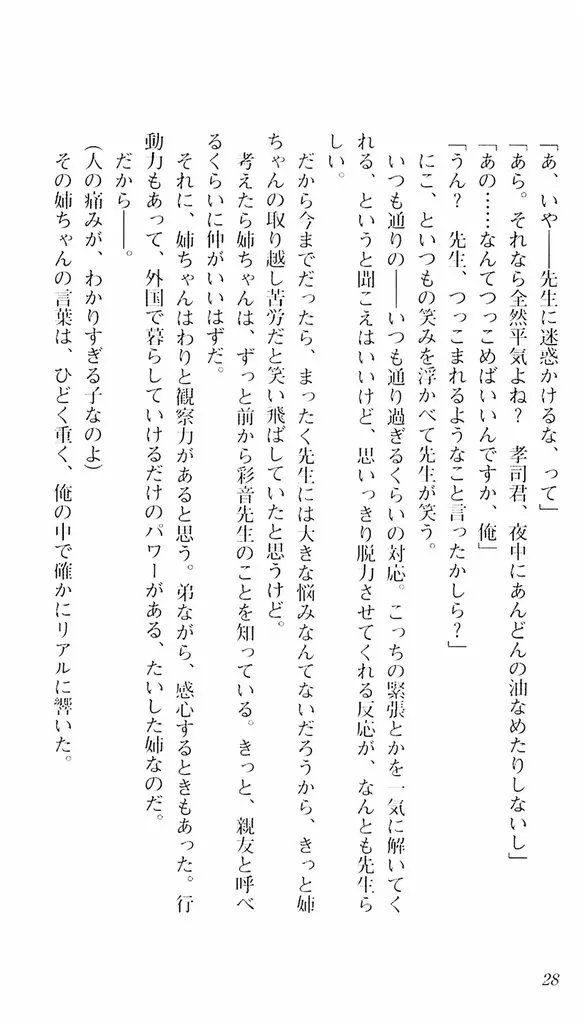 「あ、いや――先生に迷惑かけるな、って」
「あら。それなら全然平気よね？　孝司君、夜中にあんどんの油なめたりしないし」
「あの……なんてつっこめばいいんですか、俺」
「うん？　先生、つっこまれるようなこと言ったかしら？」
にこ、といつもの笑みを浮かべて先生が笑う。
いつも通りの――いつも通り過ぎるくらいの対応。こっちの緊張とかを一気に解いてく
れる、というと聞こえはいいけど、思いっきり脱力させてくれる反応が、なんとも先生ら
しい。
だから今までだったら、まったく先生には大きな悩みなんてないだろうから、きっと姉
ちゃんの取り越し苦労だと笑い飛ばしていたと思うけど。
考えたら姉ちゃんは、ずっと前から彩音先生のことを知っている。きっと、親友と呼べ
るくらいに仲がいいはずだ。
それに、姉ちゃんはわりと観察力があると思う。弟ながら、感心するときもあった。行
動力もあって、外国で暮らしていけるだけのパワーがある、たいした姉なのだ。
だから――。
(人の痛みが、わかりすぎる子なのよ)
その姉ちゃんの言葉は、ひどく重く、俺の中で確かにリアルに響いた。
28